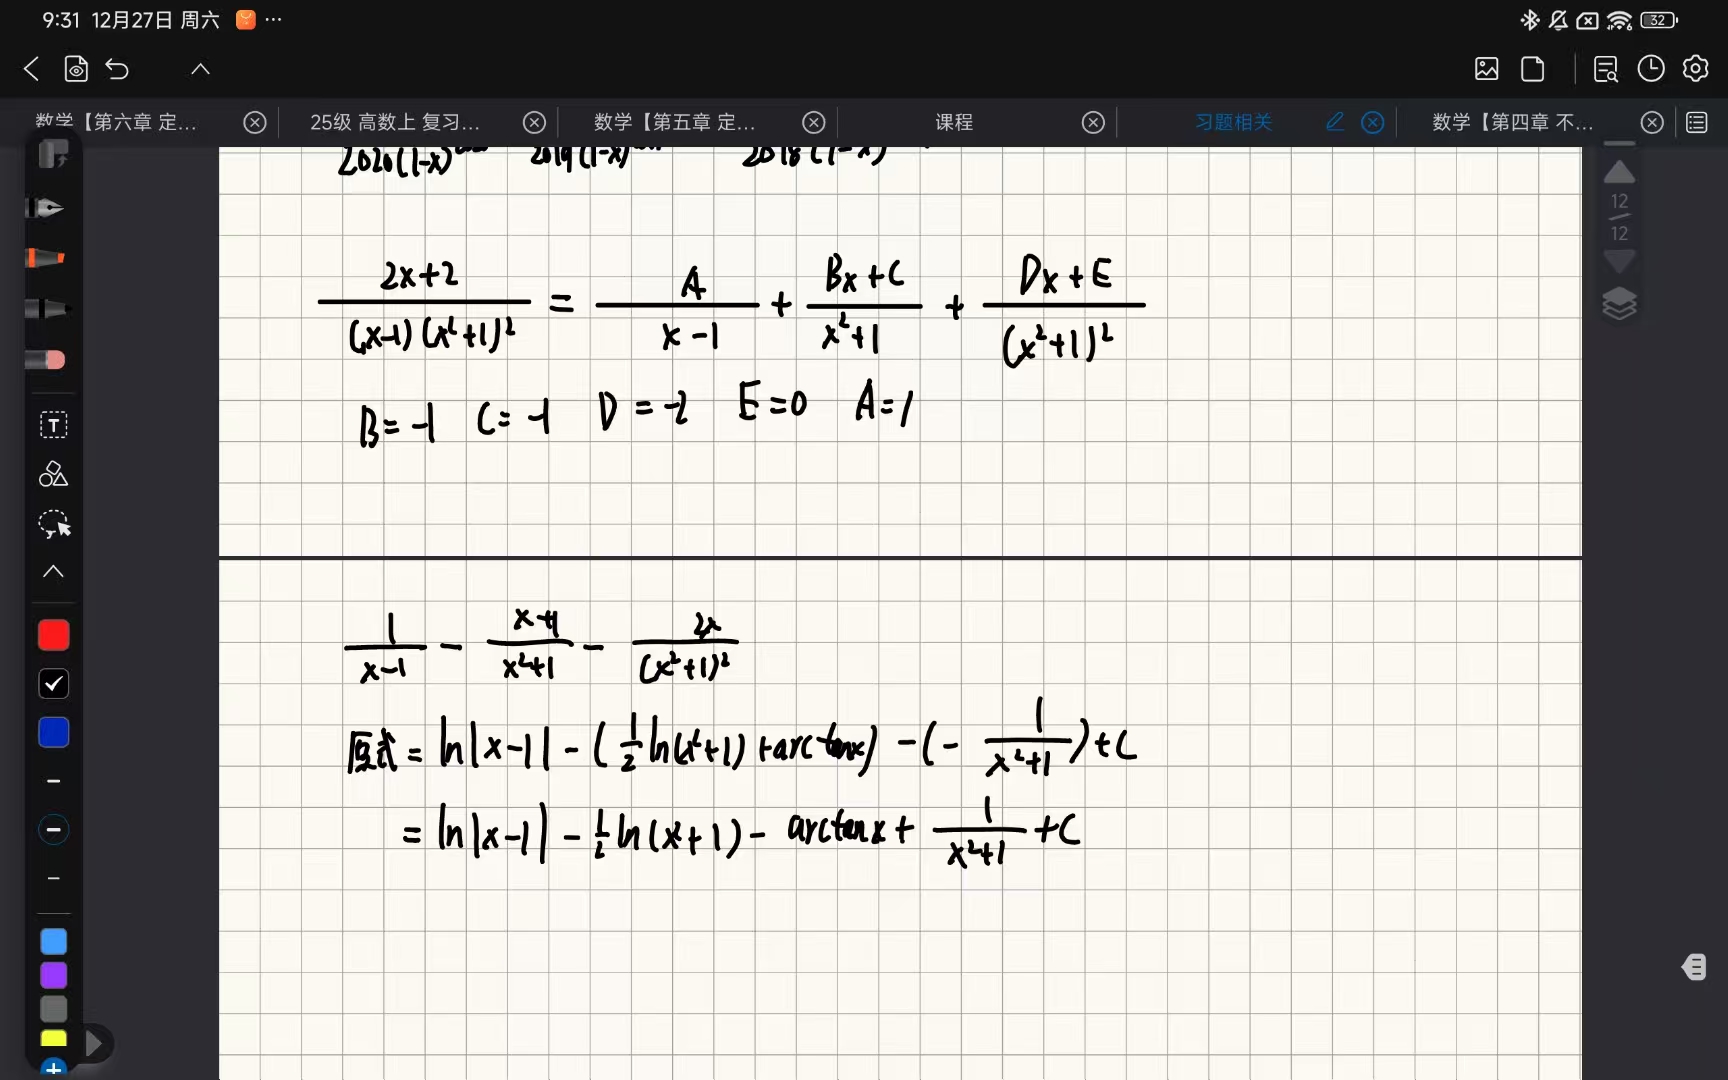 9:31 12月27日 周六 ···
32
数学【第六章 定...
25级 高数上 复习...
数学【第五章 定...
课程
习题相关
数学【第四章 不...
12
12
2020(1-x) 2019(1-x) 2018(1-x)
(2x+2)/((x-1)(x²+1)²) = A/(x-1) + (Bx+C)/(x²+1) + (Dx+E)/((x²+1)²)
B=-1 C=-1 D=-2 E=0 A=1
1/(x-1) - (x+1)/(x²+1) - 2x/((x²+1)²)
原式 = ln|x-1| - (1/2 ln(x²+1) + arctanx) - (- 1/(x²+1)) + C
= ln|x-1| - 1/2 ln(x²+1) - arctanx + 1/(x²+1) + C
T